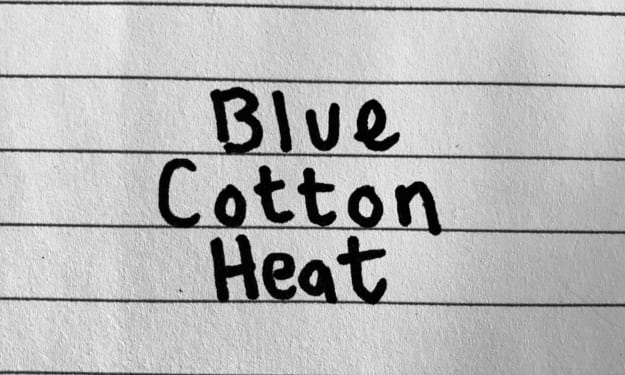 Blue
Cotton
Heat